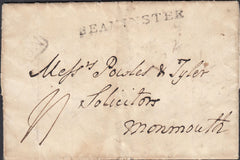 BEAMINSTER
Messrs Powles & Tyler
Solicitors
Monmouth